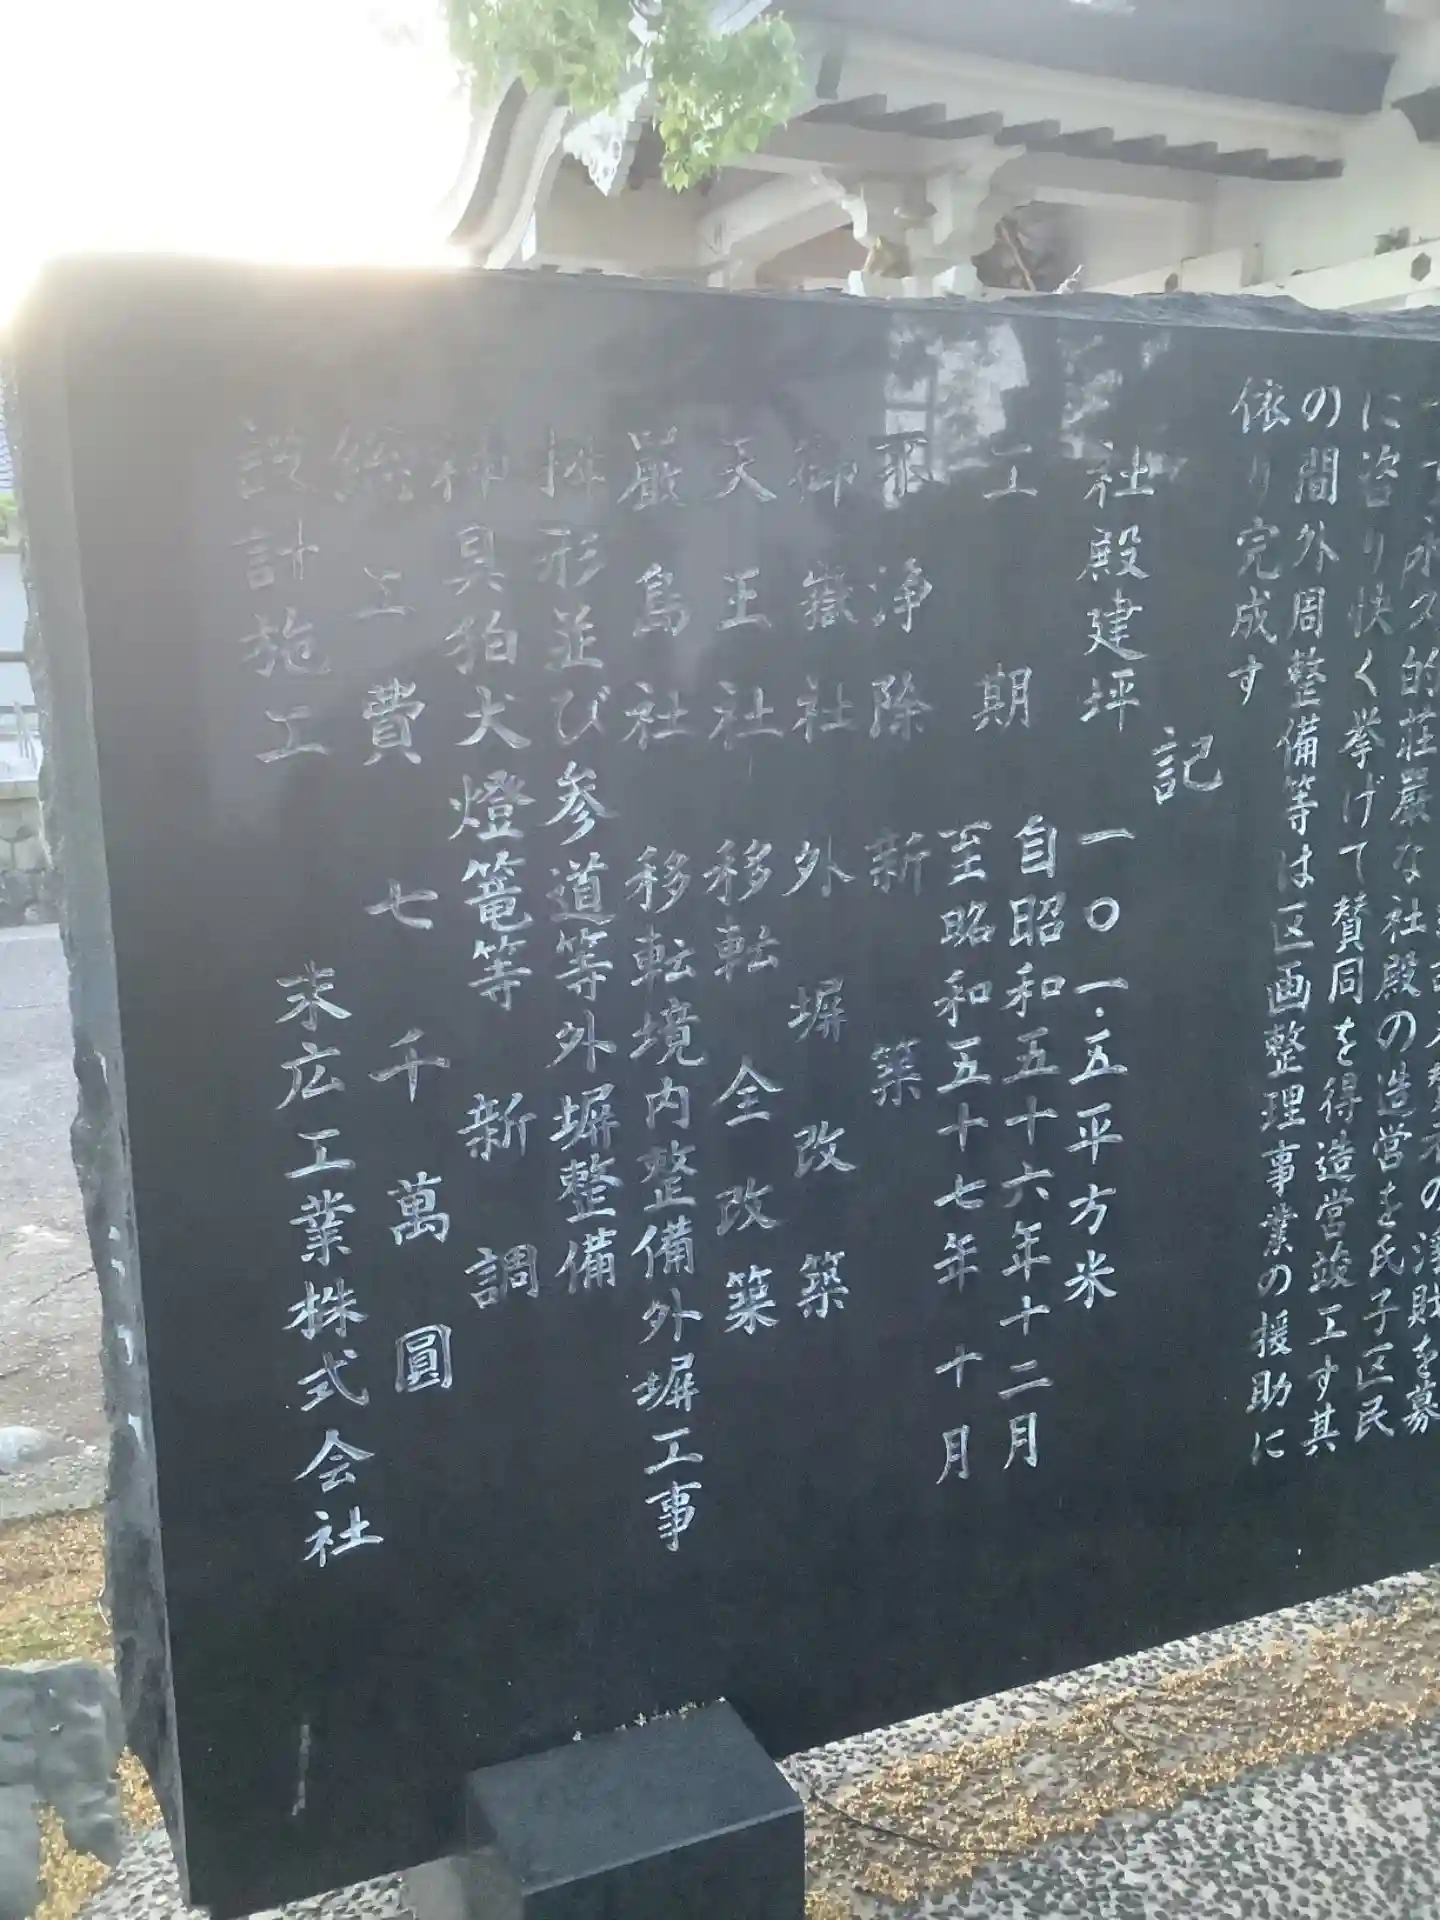 永久的荘厳な社殿の造営を氏子区民
に諮り快く挙げて賛同を得造営竣工す其
の間外周整備等は区画整理事業の援助に
依り完成す
記
社殿建坪 一〇一・五平方米
工期 自昭和五十六年十二月
至昭和五十七年十月
不浄除 新築
御嶽社 外塀改築
天王社 移転全改築
厳島社 移転境内整備外塀工事
桝形並び参道等外塀整備
神具狛犬燈篭等 新調
総工費 七千萬圓
設計施工 末広工業株式会社